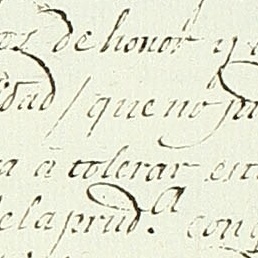 de honor y
dad / que no
a à tolerar est
de la prud.ª con